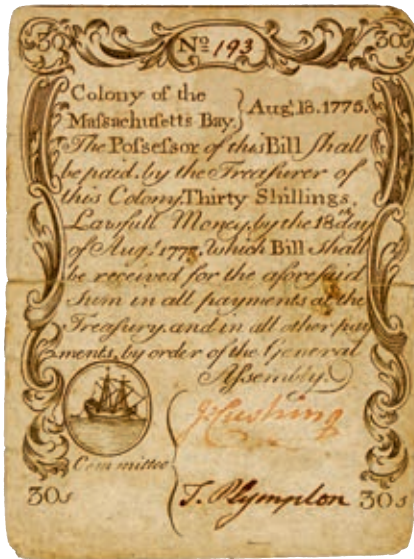 30s No 193 30s
Colony of the
Massachusetts Bay. } Augt. 18. 1775.
The Possessor of this Bill shall
be paid, by the Treasurer of
this Colony, Thirty Shillings,
Lawfull Money, by the 18th day
of Augt. 1778, which Bill shall
be received for the aforesaid
Sum in all payments at the
Treasury, and in all other pay
ments, by order of the General
Assembly.
J Cushing
Committee
30s T. Plympton 30s